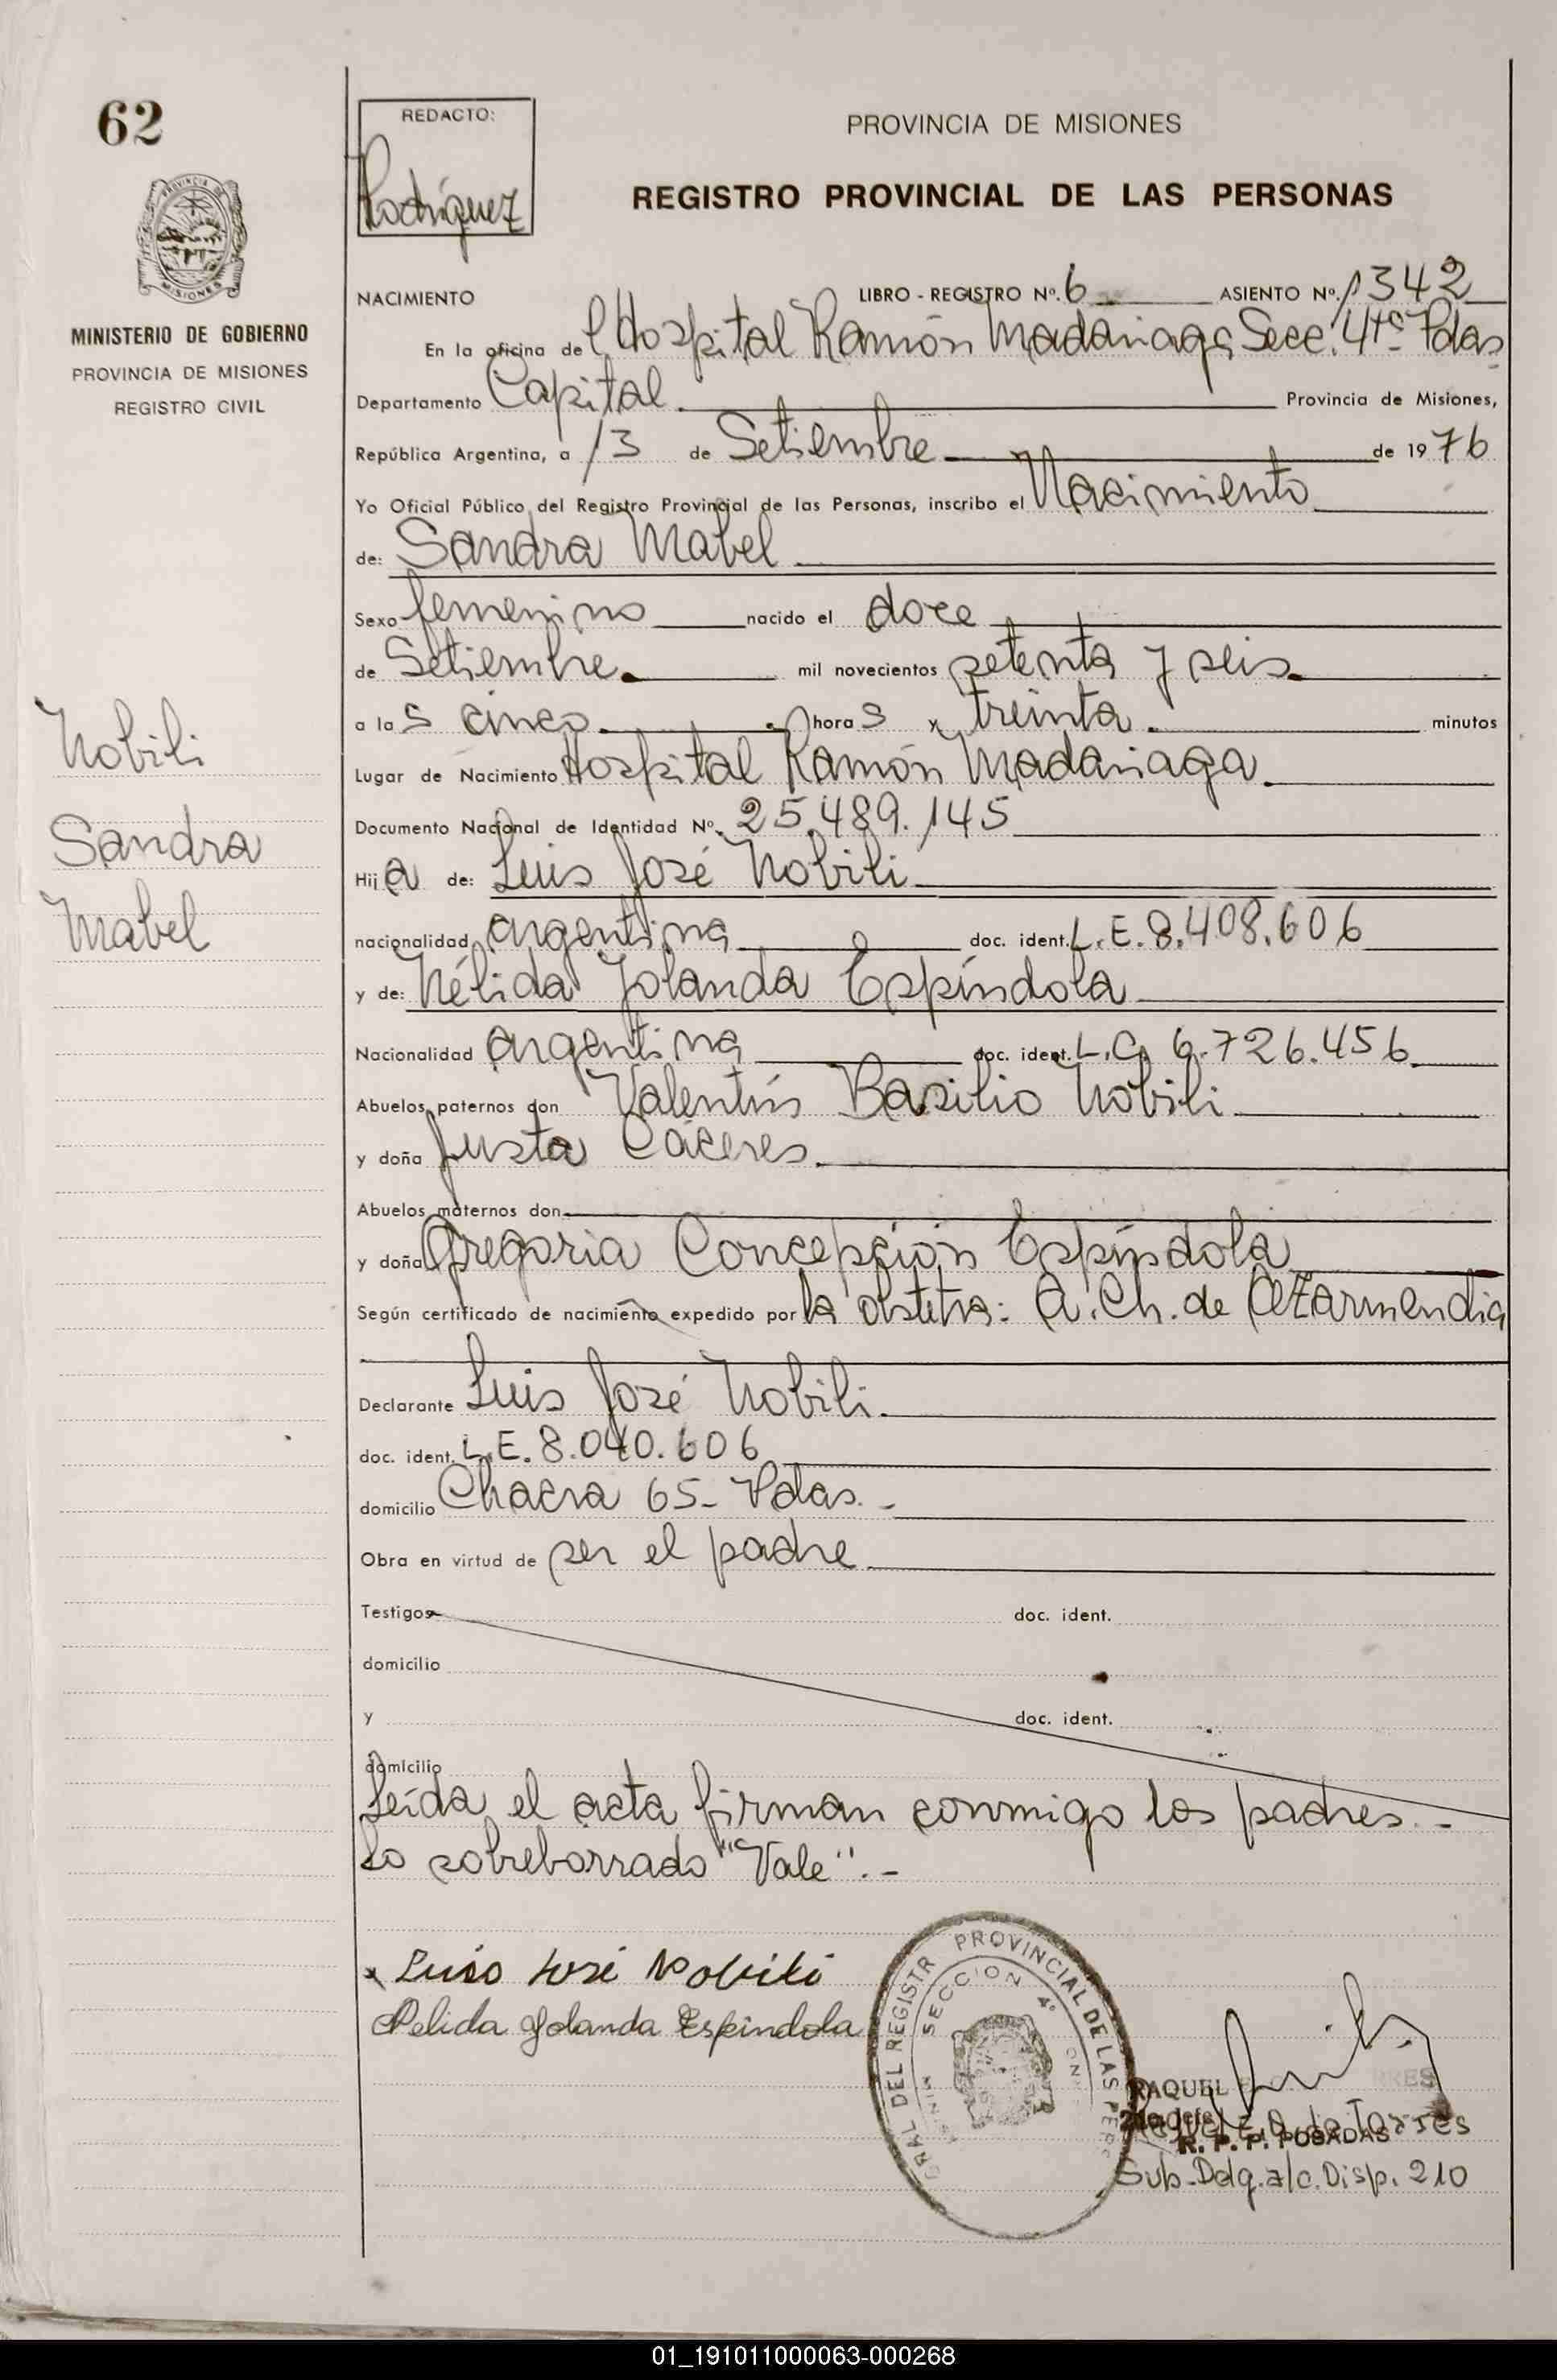 62
REDACTO:
Rodríguez
PROVINCIA DE MISIONES
REGISTRO PROVINCIAL DE LAS PERSONAS
PROVINCIA DE
MISIONES
MINISTERIO DE GOBIERNO
PROVINCIA DE MISIONES
REGISTRO CIVIL
NACIMIENTO LIBRO - REGISTRO Nº. 6 ASIENTO Nº. 1342
En la oficina del Hospital Ramón Madariaga Secc. 4ta Pdas
Departamento Capital Provincia de Misiones,
República Argentina, a 13 de Setiembre de 1976
Yo Oficial Público del Registro Provincial de las Personas, inscribo el Nacimiento
de: Sandra Mabel
Sexo femenino nacido el doce
de Setiembre. mil novecientos setenta y seis.
a las cinco. horas y treinta. minutos
Lugar de Nacimiento Hospital Ramón Madariaga.
Documento Nacional de Identidad Nº. 25.489.145
Hija de: Luis José Nobili
nacionalidad argentina doc. ident. L.E. 8.408.606
y de: Nélida Yolanda Espíndola
Nacionalidad argentina doc. ident. L.C. 6.726.456
Abuelos paternos don Valentín Basilio Nobili
y doña Justa Cáceres.
Abuelos maternos don
y doña Gregoria Concepción Espíndola
Según certificado de nacimiento expedido por la obstetra: A. Ch. de Azarmendia
Declarante Luis José Nobili.
doc. ident. L.E. 8.040.606
domicilio Chacra 65- Pdas. -
Obra en virtud de ser el padre
Testigos doc. ident.
domicilio
y doc. ident.
domicilio
Leída el acta firman conmigo los padres. -
Lo sobreborrado "Vale". -
Nobili
Sandra
Mabel
x Luis José Nobili
Nelida Yolanda Espindola
GRAL DEL REGISTR PROVINCIAL DE LAS PERS
SECCION 4º
RAQUEL RRES
Raquel E. de Torres
R. P. P. POSADAS
Sub-Delg. a/c. Disp. 210
01_191011000063-000268